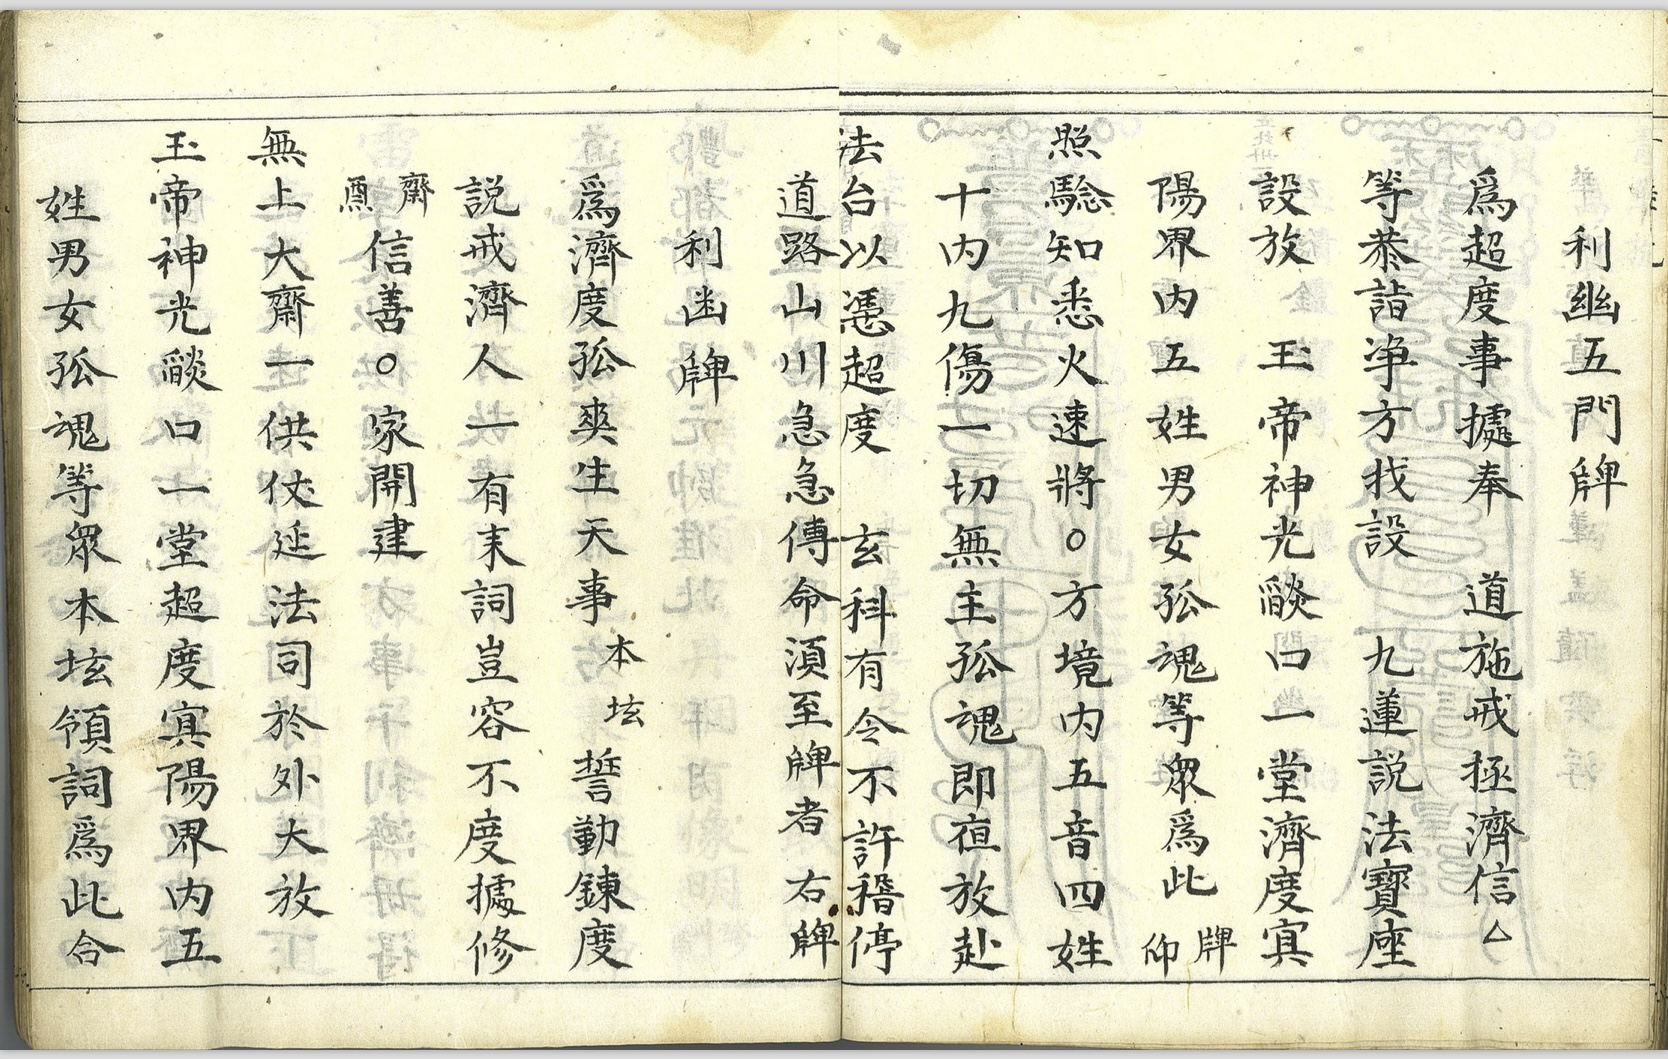 利幽五門牌
爲超度事據奉　道施戒拯濟信△
等恭詣净方找設　九蓮説法寶座
設放　玉帝神光燄口一堂濟度㝠
陽界内五姓男女孤魂等眾爲此牌仰
照驗知悉火速將○方境内五音四姓
十内九傷一切無主孤魂即𠱾放赴
法台以凴超度　玄科有令不許稽停
道路山川急急傳命湏至牌者右牌
利幽牌
爲濟度孤㷠生天事本坛誓勤錬度
説戒濟人一有来詞豈容不度據修
齋薦信善○家開建
無上大齋一供伏延法司於外大放
玉帝神光燄口一堂超度㝠陽界内五
姓男女孤魂等眾本坛領詞爲此合